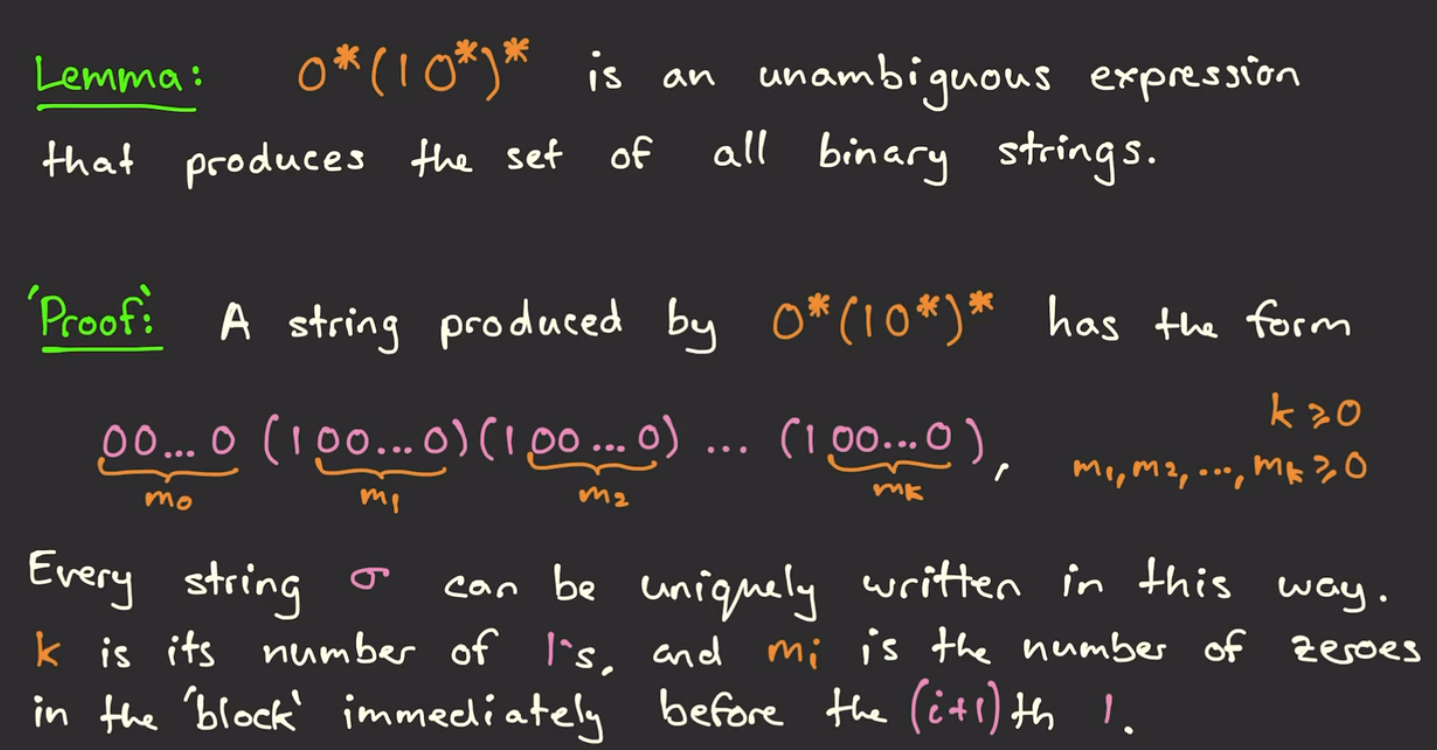 Lemma: 0*(10*)* is an unambiguous expression
that produces the set of all binary strings.
'Proof': A string produced by 0*(10*)* has the form
00...0 (100...0)(100...0) ... (100...0), k ⩾ 0
m₀ m₁ m₂ mₖ m₁, m₂, ..., mₖ ⩾ 0
Every string σ can be uniquely written in this way.
k is its number of 1's, and mᵢ is the number of zeroes
in the 'block' immediately before the (i+1)th 1.